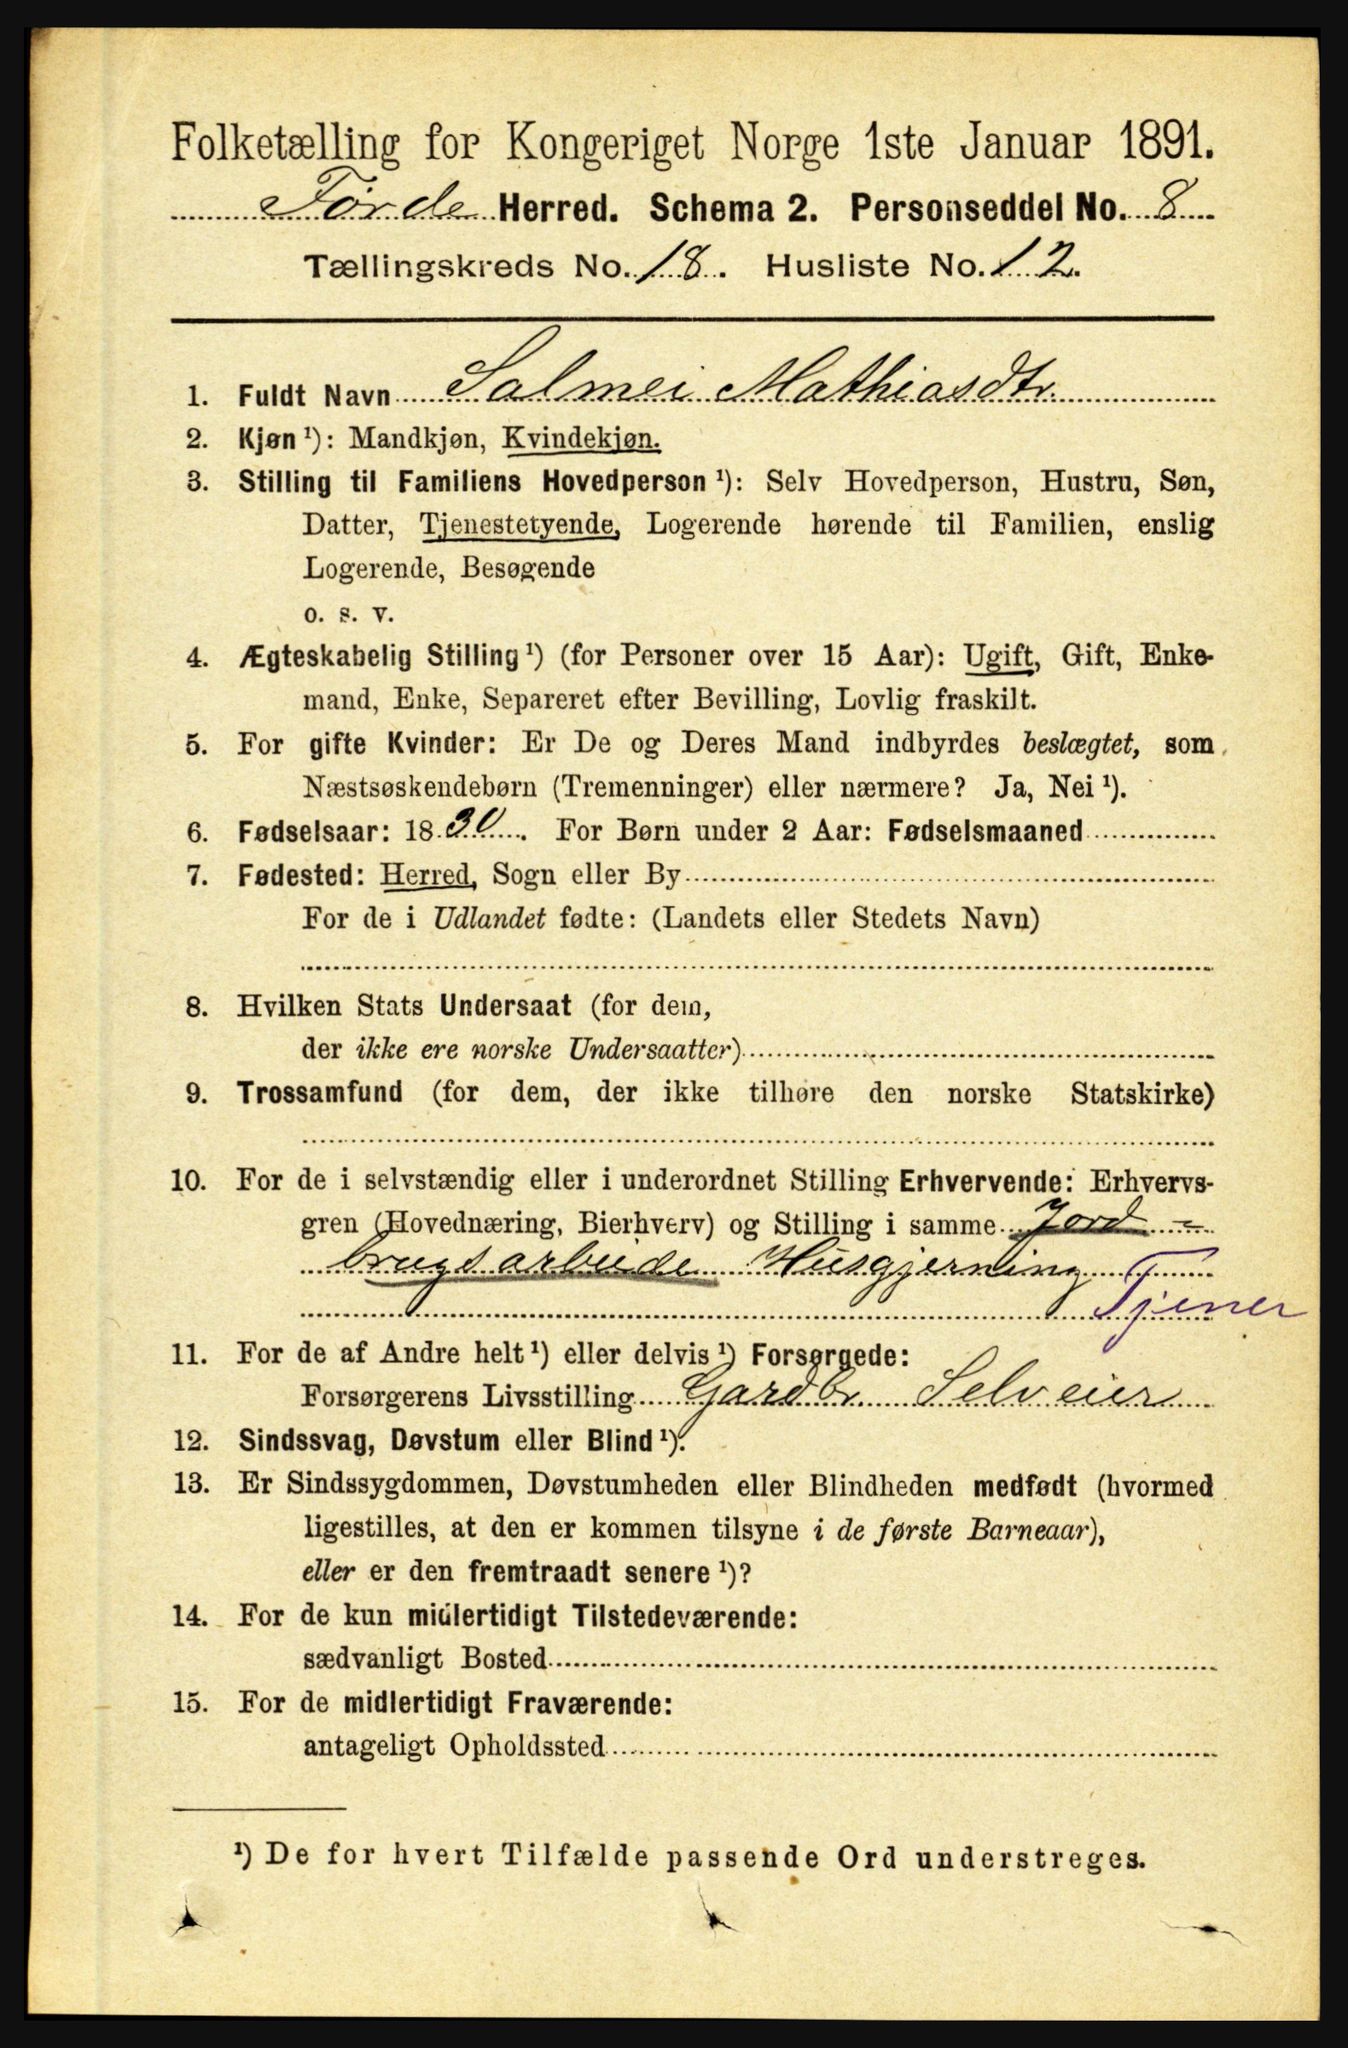 Folketælling for Kongeriget Norge 1ste Januar 1891.
Førde Herred. Schema 2. Personseddel No. 8
Tællingskreds No. 18. Husliste No. 12.
1. Fuldt Navn Salmei Mathiasdtr.
2. Kjøn ¹): Mandkjøn, Kvindekjøn.
3. Stilling til Familiens Hovedperson ¹): Selv Hovedperson, Hustru, Søn,
Datter, Tjenestetyende, Logerende hørende til Familien, enslig
Logerende, Besøgende
o. s. v.
4. Ægteskabelig Stilling ¹) (for Personer over 15 Aar): Ugift, Gift, Enke-
mand, Enke, Separeret efter Bevilling, Lovlig fraskilt.
5. For gifte Kvinder: Er De og Deres Mand indbyrdes beslægtet, som
Næstsøskendebørn (Tremenninger) eller nærmere? Ja, Nei ¹).
6. Fødselsaar: 1830. For Børn under 2 Aar: Fødselsmaaned
7. Fødested: Herred, Sogn eller By
For de i Udlandet fødte: (Landets eller Stedets Navn)
8. Hvilken Stats Undersaat (for dem,
der ikke ere norske Undersaatter)
9. Trossamfund (for dem, der ikke tilhøre den norske Statskirke)
10. For de i selvstændig eller i underordnet Stilling Erhvervende: Erhvervs-
gren (Hovednæring, Bierhverv) og Stilling i samme Jord-
brugsarbeide Husgjerning
Tjener
11. For de af Andre helt ¹) eller delvis ¹) Forsørgede:
Forsørgerens Livsstilling Gardbr. Selveier
12. Sindssvag, Døvstum eller Blind ¹).
13. Er Sindssygdommen, Døvstumheden eller Blindheden medfødt (hvormed
ligestilles, at den er kommen tilsyne i de første Barneaar),
eller er den fremtraadt senere ¹)?
14. For de kun midlertidigt Tilstedeværende:
sædvanligt Bosted
15. For de midlertidigt Fraværende:
antageligt Opholdssted
¹) De for hvert Tilfælde passende Ord understreges.